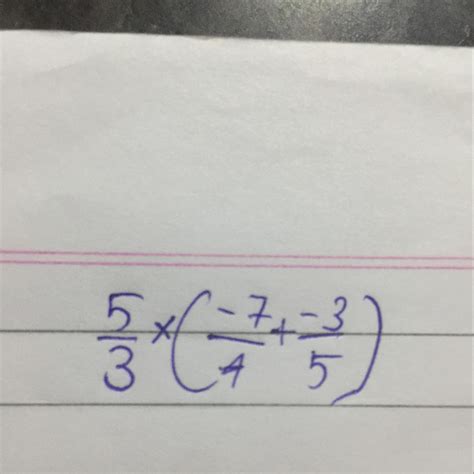 5/3 × (-7/4 + -3/5)